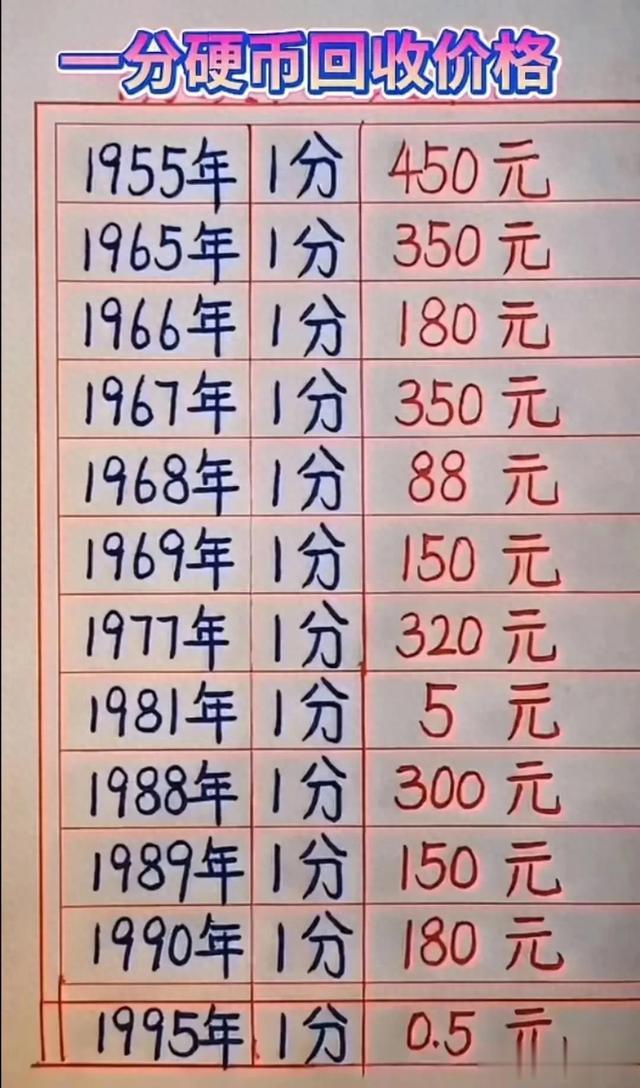 一分硬币回收价格
1955年 1分 450元
1965年 1分 350元
1966年 1分 180元
1967年 1分 350元
1968年 1分 88元
1969年 1分 150元
1977年 1分 320元
1981年 1分 5元
1988年 1分 300元
1989年 1分 150元
1990年 1分 180元
1995年 1分 0.5元